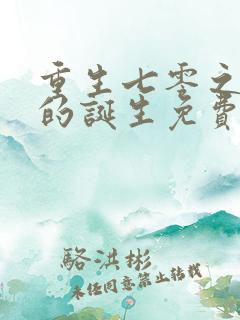 重生七零之
的誕生免費
駱洪彬
未任同意禁止转载